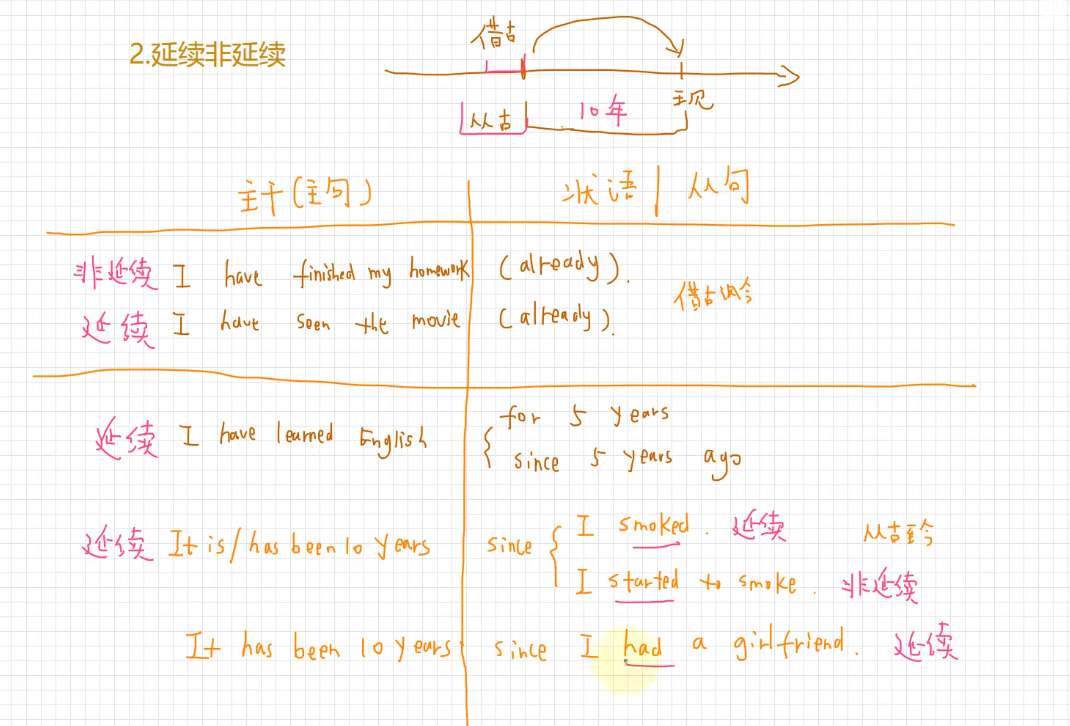 2.延续非延续
借古
从古 10年 主现
主干(主句) 状语 | 从句
非延续 I have finished my homework (already).
延续 I have seen the movie (already).
借古说今
延续 I have learned English { for 5 years
since 5 years ago
延续 It is/has been 10 years since { I smoked. 延续
从古至今
I started to smoke. 非延续
It has been 10 years since I had a girlfriend. 延续